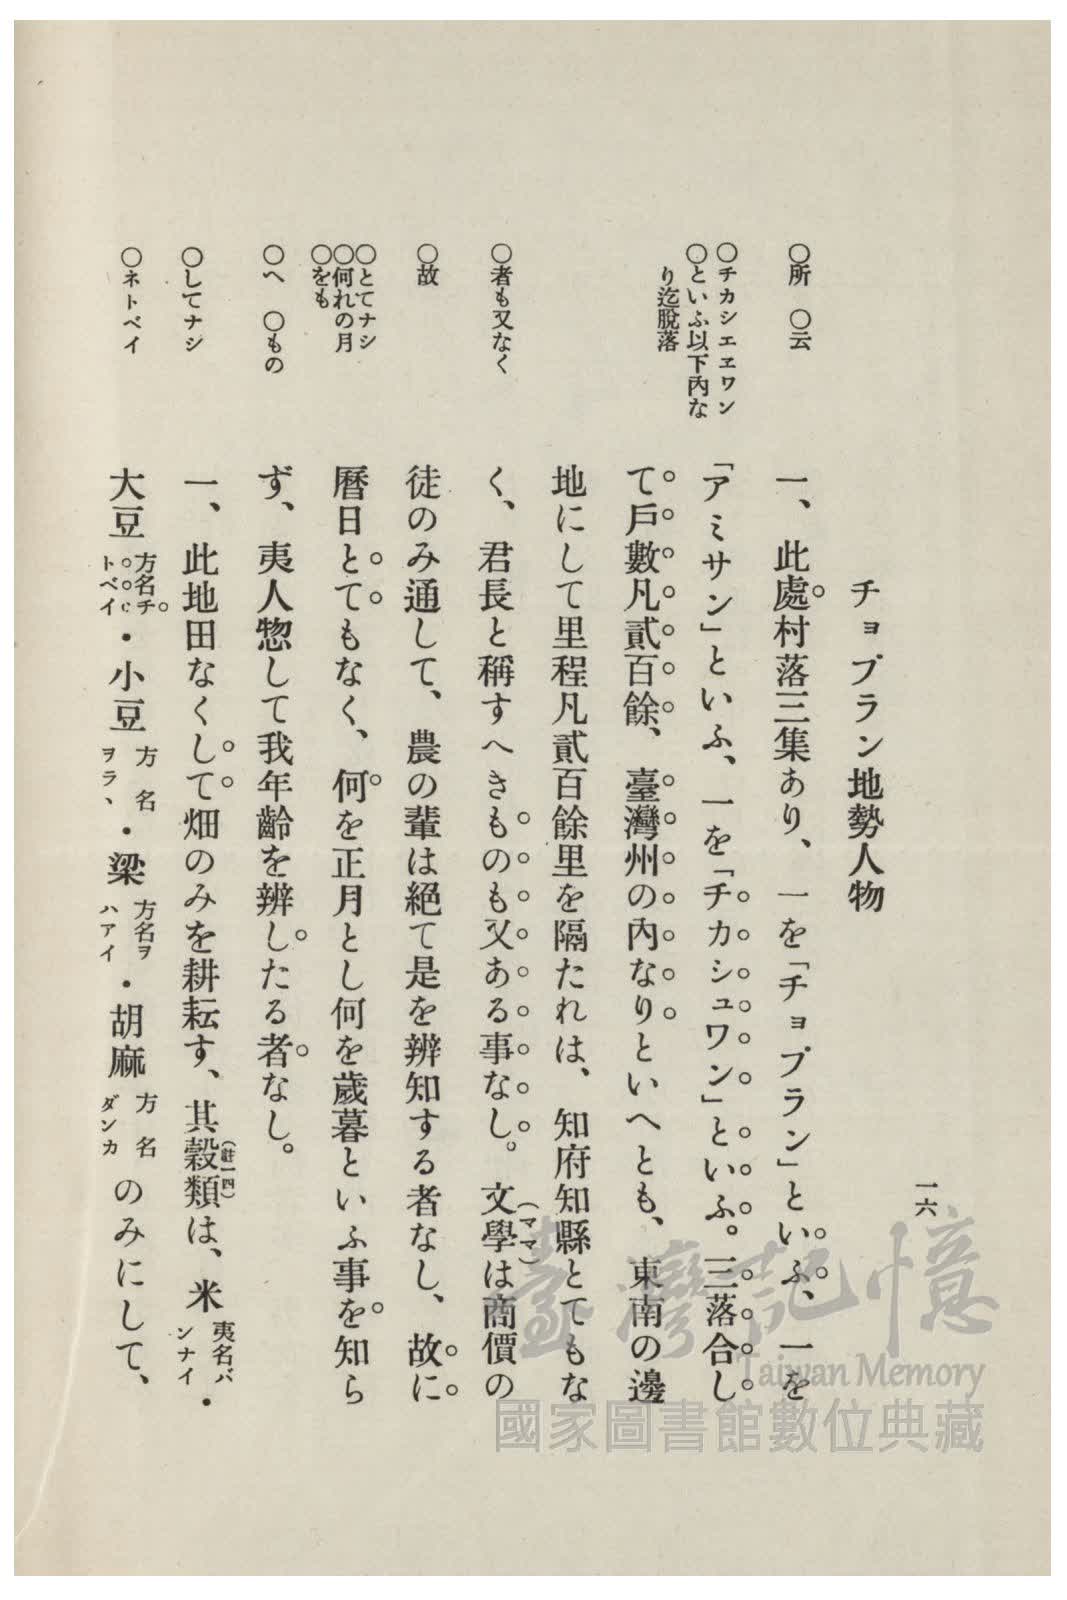 チョプラン地勢人物
一、此處村落三集あり、一を「チョプラン」といふ、一を
「アミサン」といふ、一を「チカシュワン」といふ。三落合し
て戶數凡貳百餘、臺灣州の內なりといへとも、東南の邊
地にして里程凡貳百餘里を隔たれは、知府知縣とてもな
く、君長と稱すへきものも又ある事なし。文學は商價の
(ママ)
徒のみ通して、農の輩は絕て是を辨知する者なし、故に
曆日とてもなく、何を正月とし何を歲暮といふ事を知ら
ず、夷人惣して我年齡を辨したる者なし。
一、此地田なくして畑のみを耕耘す、其穀類は、米 夷名バンナイ・
(註一四)
大豆 方名チトベイ・小豆 方名ヲラ、・粱 方名ヲハアイ・胡麻 方名ダンカ のみにして、
〇所 〇云
〇チカシエヱワン
〇といふ以下內な
り迄脫落
〇者も又なく
〇故
〇とてナシ
〇何れの月
〇をも
〇へ 〇もの
〇してナシ
〇ネトベイ
一六
臺灣記憶
Taiwan Memory
國家圖書館數位典藏